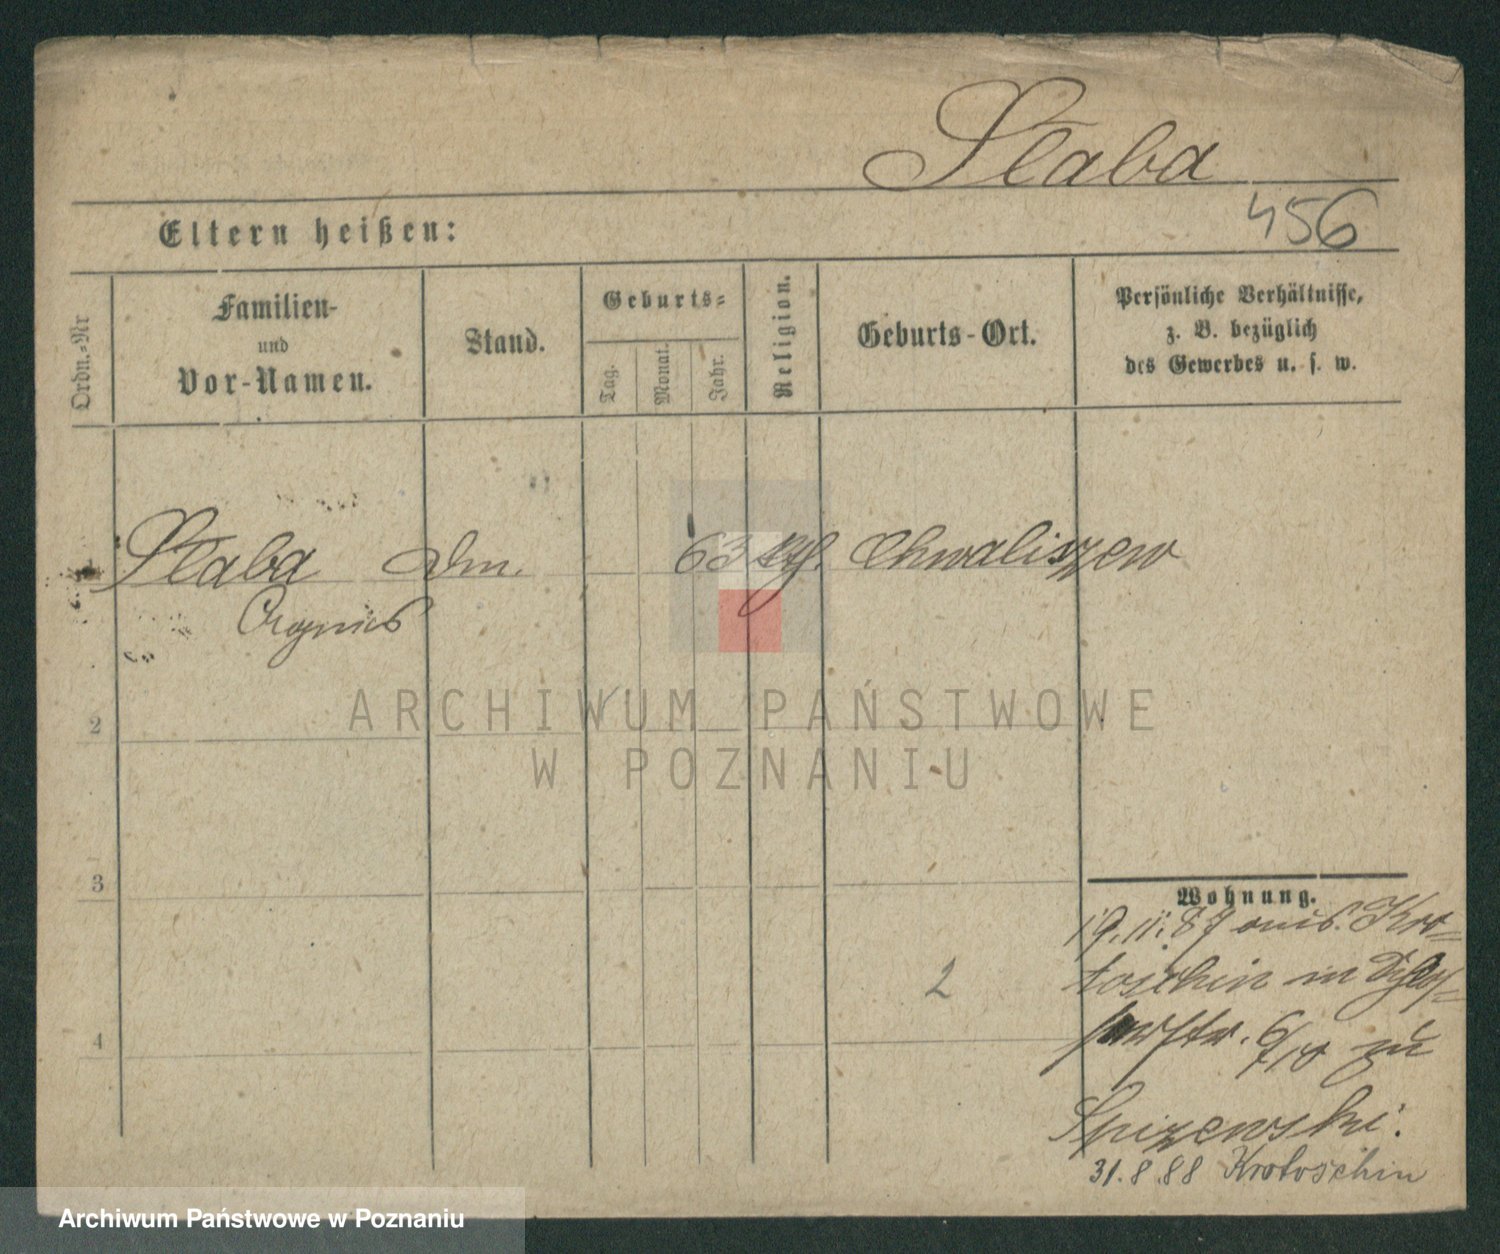 Słaba
456
Eltern heißen:
Ordn.-Nr
Familien-
und
Vor-Namen.
Stand.
Geburts-
Tag.
Monat.
Jahr.
Religion.
Geburts-Ort.
Persönliche Verhältnisse,
z. B. bezüglich
des Gewerbes u. s. w.
1 Słaba 63 Chwaliszew
Agnes
2
3
4
2
Wohnung.
19.11.87 Kro-
toschin in
6/10 zu
Spizewski.
31.8.88 Krotoschin
ARCHIWUM PAŃSTWOWE
W POZNANIU
Archiwum Państwowe w Poznaniu